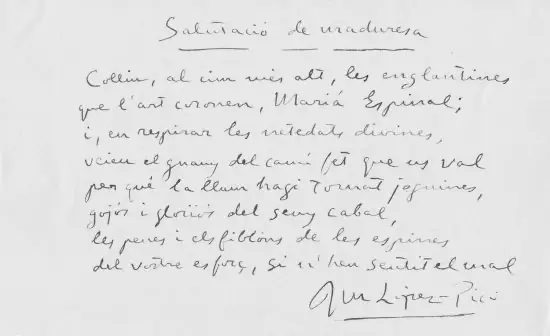 Salutació de maduresa
Collim, al cim més alt, les englantines
que l'art coronen, Marià Espinal;
i, en respirar les netedats divines,
veieu el guany del camí fet que us val
per què la llum hagi tornat joguines,
gojós i gloriós del seny cabal,
les penes i els fiblons de les espines
del vostre esforç, si n'heu sentit el mal
López-Picó